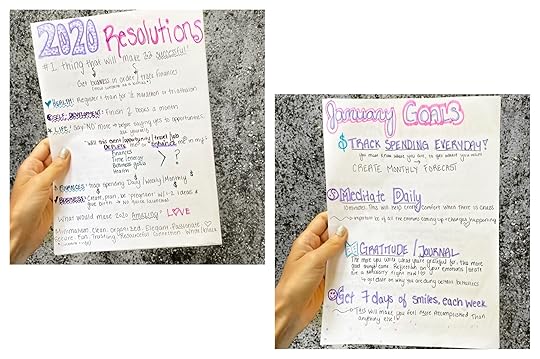 2020 Resolutions
#1 thing that will make 2020 successful!
Get business in order / track finances
HEALTH: Register & train for ½ marathon or triathalon
SELF DEVELOPMENT: Finish 2 books a month
LIFE: Say NO more to begin saying yes to opportunities.
ask yourself
"Will this event/opportunity/travel/job
DEPLETE me or ENHANCE me" in my:
Finances
Time/energy
Business goals
Health
?
FINANCES: track spending Daily / Weekly / Monthly
BUSINESS: Create, plan, be "pregnant" w/ 1-2 ideas &
give birth
What would make 2020 Amazing? LOVE
Minimalism, Clean, organized, Elegant, Passionate
Secure, Fun, Trusting, Resourceful
January GOALS
$ TRACK SPENDING EVERYDAY!
you must know where you are, to get where you want
CREATE MONTHLY FORECAST
Meditate Daily
10 minutes. This will help create comfort when there is chaos
important to
GRATITUDE / JOURNAL
The more you write ideas you're grateful for, the more
good things come. Reflection on your emotions
get clear on why you are doing certain behaviors
Get 7 days of smiles, each week
This will make you feel more accomplished than
anything else!